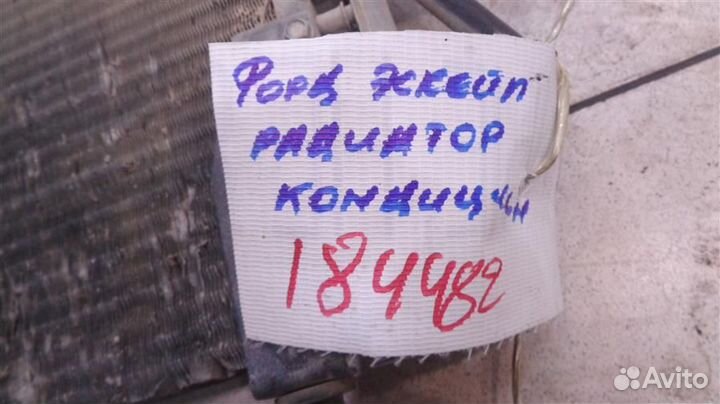 Форд Эскейп
радиатор
кондиц
184482
Avito